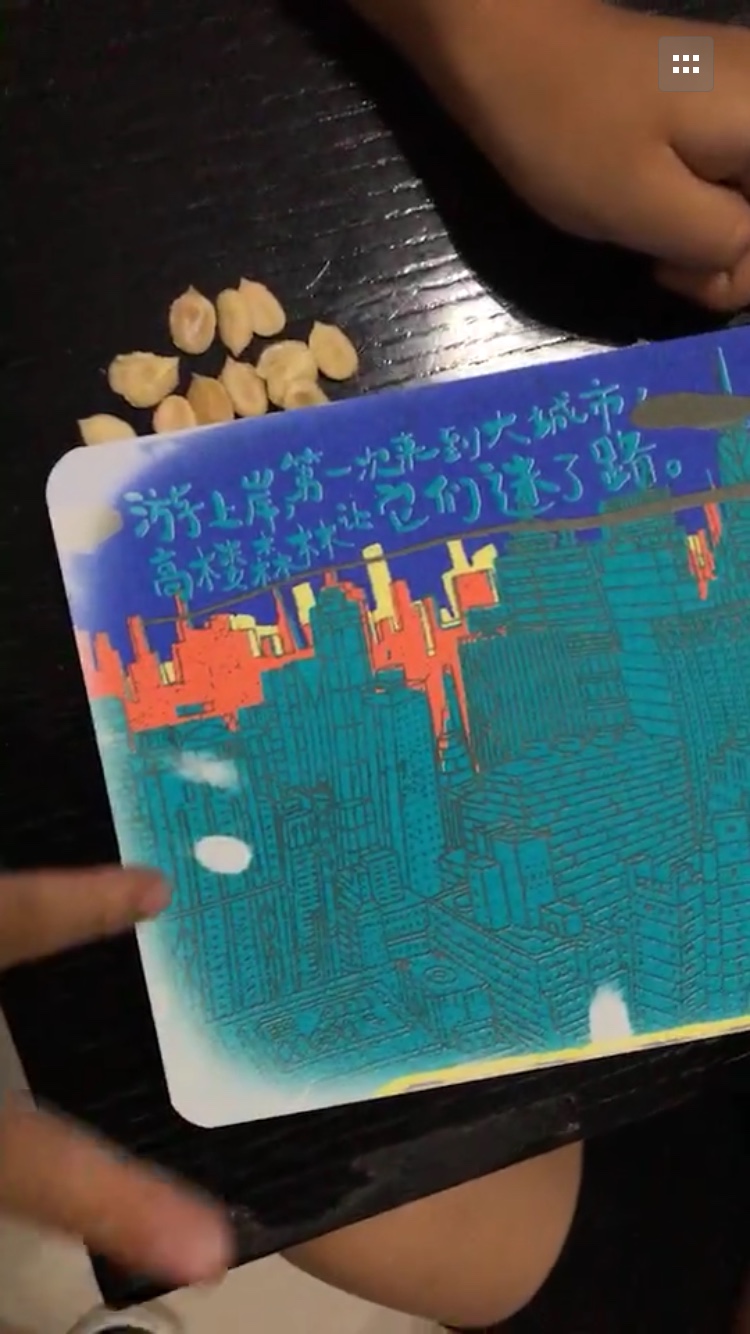 游上岸,第一次来到大城市,
高楼森林让它们迷了路。